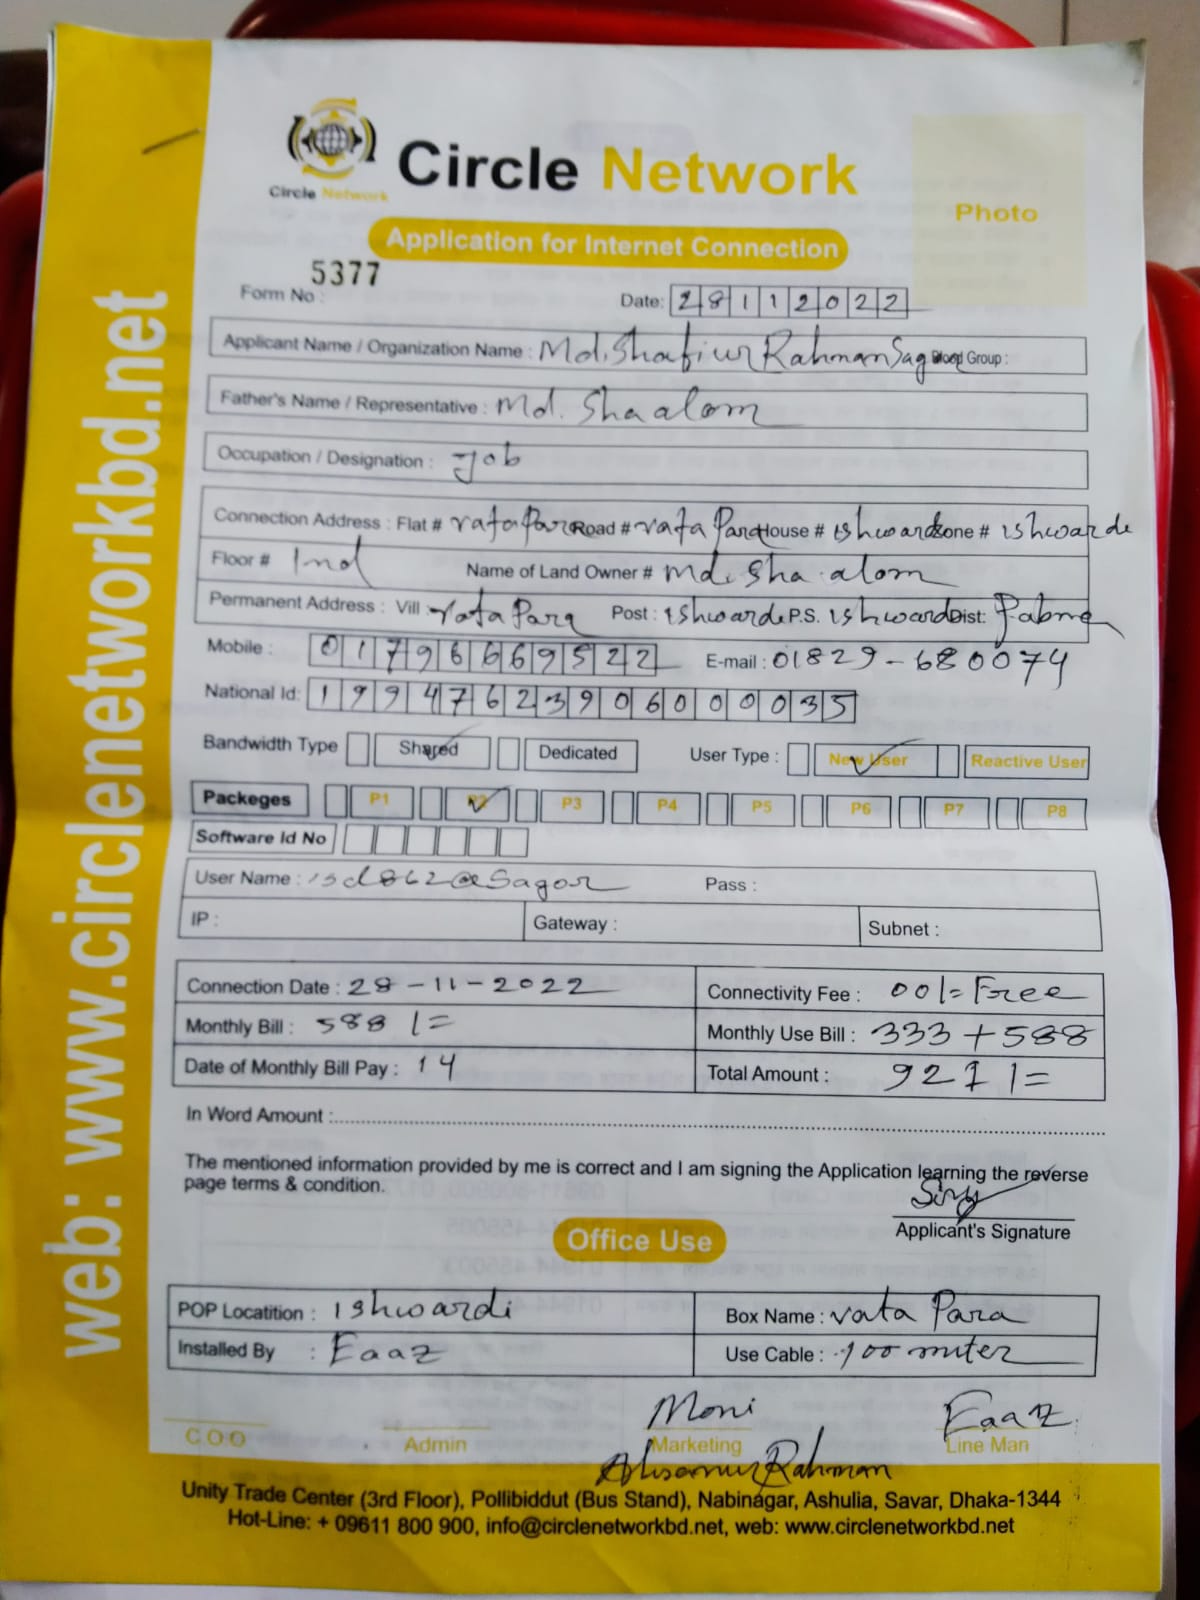 Circle Network
Circle Network
Photo
Application for Internet Connection
Form No : 5377
Date: 28112022
Applicant Name / Organization Name : Md. Shafiur Rahman Sagor Blood Group :
Father's Name / Representative : Md. Sha alom
Occupation / Designation : Job
Connection Address : Flat # vata Para Road # vata Para House # Ishwardi Zone # ishwarde
Floor # Ind Name of Land Owner # Md. Sha alom
Permanent Address : Vill : Vata Para Post : Ishwarde P.S. ishwardi Dist: Pabna
Mobile : 01796669522 E-mail : 01829-680074
National Id: 19947623906000035
Bandwidth Type Shared Dedicated User Type : New User Reactive User
Packeges P1 P2 P3 P4 P5 P6 P7 P8
Software Id No
User Name : isd862@Sagor Pass :
IP : Gateway : Subnet :
Connection Date : 28-11-2022 Connectivity Fee : 00/= Free
Monthly Bill : 588/= Monthly Use Bill : 333+588
Date of Monthly Bill Pay : 14 Total Amount : 921/=
In Word Amount :
The mentioned information provided by me is correct and I am signing the Application learning the reverse
page terms & condition.
Applicant's Signature
Office Use
POP Locatition : Ishwardi Box Name : vata Para
Installed By : Eaaz Use Cable : 100 miter
Moni Eaaz
C.O.O Admin Marketing Line Man
Rahman
Unity Trade Center (3rd Floor), Pollibiddut (Bus Stand), Nabinagar, Ashulia, Savar, Dhaka-1344
Hot-Line: + 09611 800 900, info@circlenetworkbd.net, web: www.circlenetworkbd.net
web: www.circlenetworkbd.net